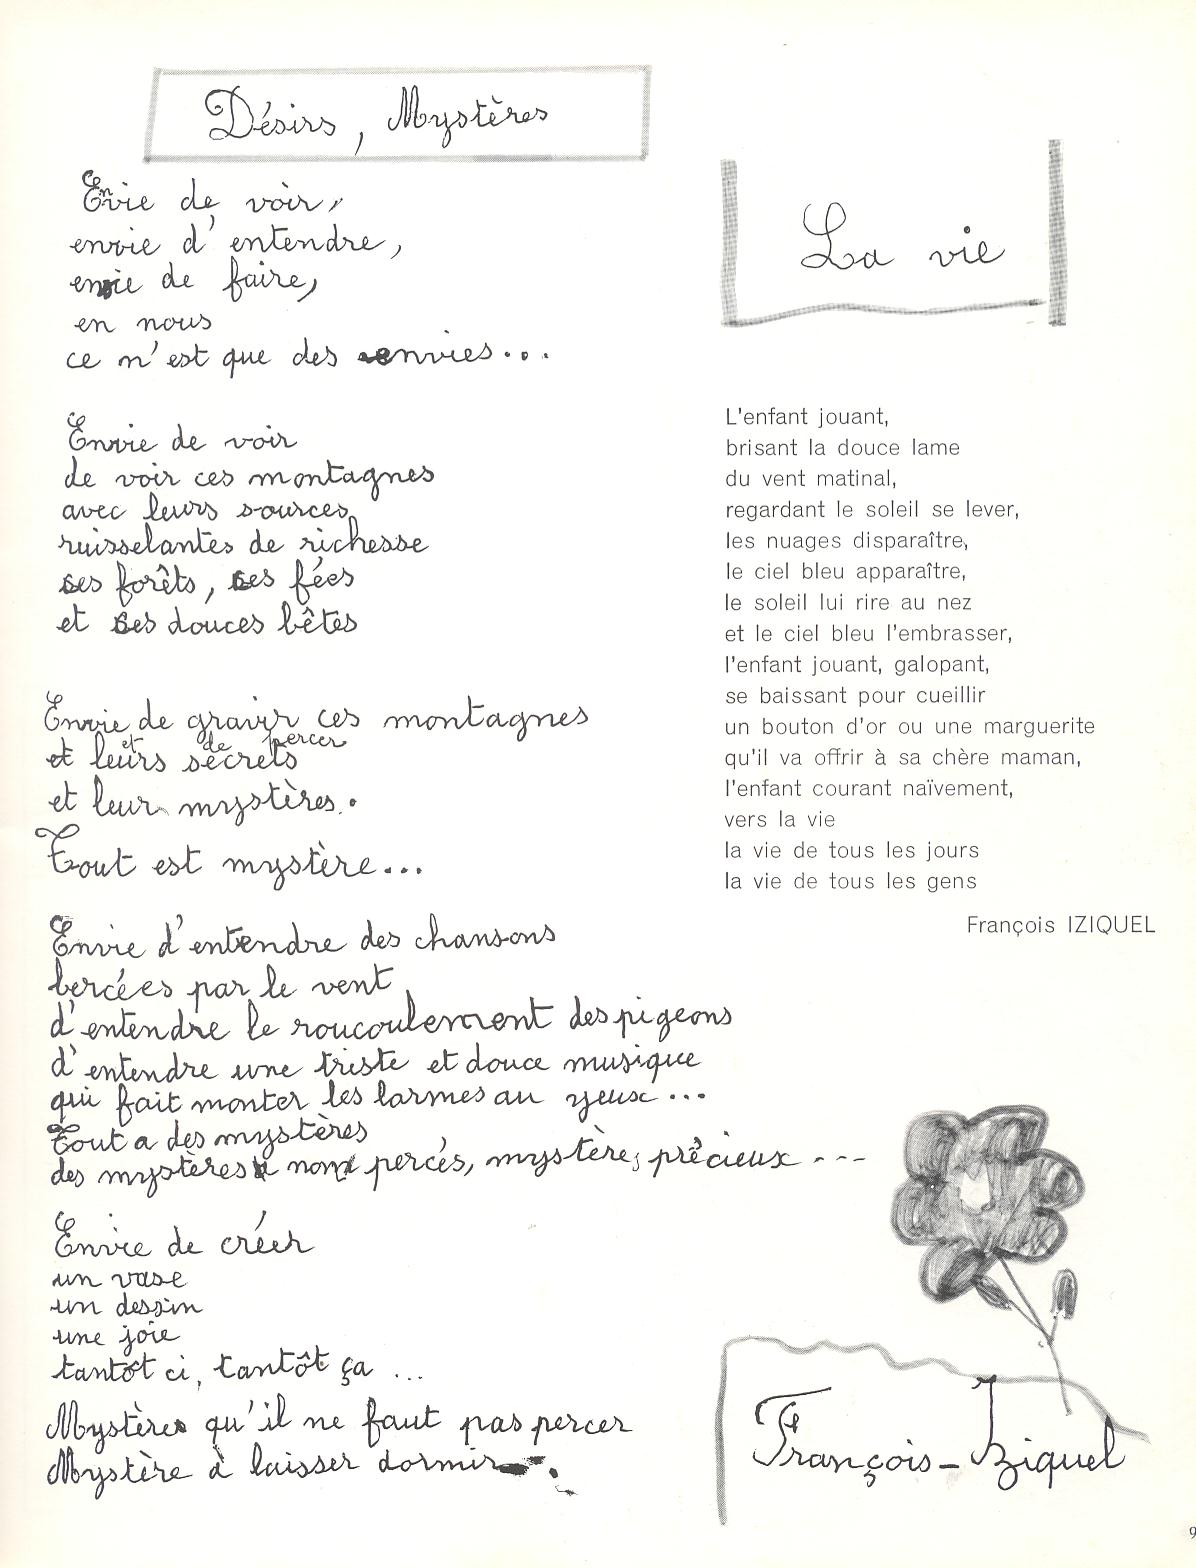 Désirs, Mystères
Envie de voir,
envie d'entendre,
envie de faire,
en nous
ce n'est que des envies...
Envie de voir
de voir ces montagnes
avec leurs sources
ruisselantes de richesse
ses forêts, ses fées
et ses douces bêtes
Envie de gravir ces montagnes
et de percer
et leurs secrets
et leur mystères.
Tout est mystère...
Envie d'entendre des chansons
bercées par le vent
d'entendre le roucoulement des pigeons
d'entendre une triste et douce musique
qui fait monter les larmes au yeux...
Tout a des mystères
des mystères non percés, mystères précieux ---
Envie de créer
un vase
un dessin
une joie
tantôt ci, tantôt ça ...
Mystères qu'il ne faut pas percer
Mystère à laisser dormir.
La vie
L'enfant jouant,
brisant la douce lame
du vent matinal,
regardant le soleil se lever,
les nuages disparaître,
le ciel bleu apparaître,
le soleil lui rire au nez
et le ciel bleu l'embrasser,
l'enfant jouant, galopant,
se baissant pour cueillir
un bouton d'or ou une marguerite
qu'il va offrir à sa chère maman,
l'enfant courant naïvement,
vers la vie
la vie de tous les jours
la vie de tous les gens
François IZIQUEL
François-Iziquel
9